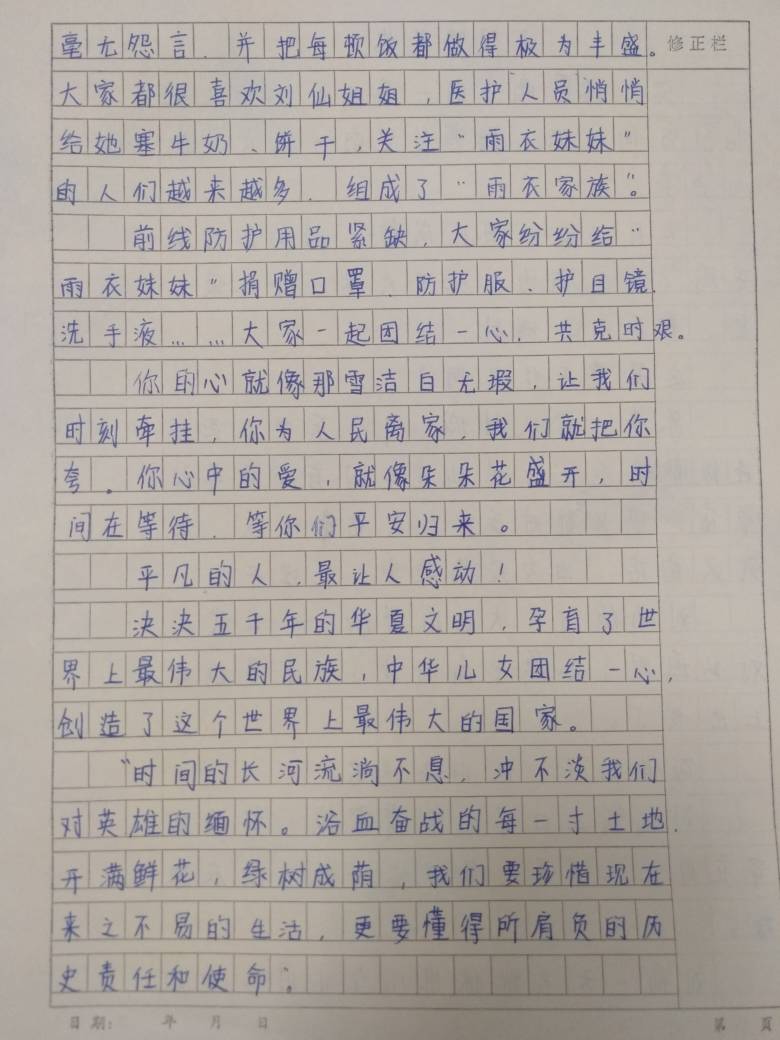 毫无怨言、并把每顿饭都做得极为丰盛。
修正栏
大家都很喜欢刘仙姐姐,医护人员悄悄
给她塞牛奶、饼干,关注“雨衣妹妹”
的人们越来越多、组成了“雨衣家族”。
前线防护用品紧缺,大家纷纷给“
雨衣妹妹”捐赠口罩、防护服、护目镜、
洗手液……大家一起团结一心,共克时艰。
你的心就像那雪洁白无瑕,让我们
时刻牵挂,你为人民离家,我们就把你
夸。你心中的爱,就像朵朵花盛开,时
间在等待、等你们平安归来。
平凡的人,最让人感动!
决决五千年的华夏文明,孕育了世
界上最伟大的民族,中华儿女团结一心,
创造了这个世界上最伟大的国家。
“时间的长河流淌不息,冲不淡我们
对英雄的缅怀。浴血奋战的每一寸土地、
开满鲜花,绿树成荫,我们要珍惜现在
来之不易的生活,更要懂得所肩负的历
史责任和使命”。
日期: 年 月 日
第 页